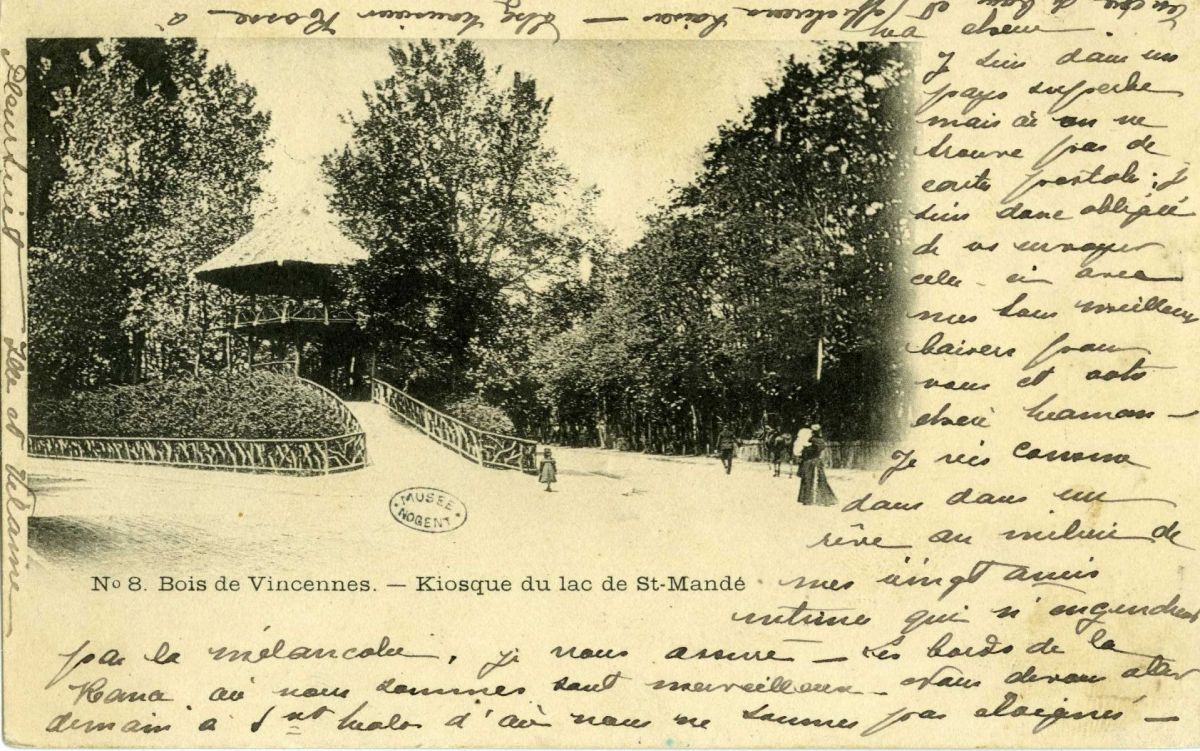 ma chère
Je suis dans un
pays superbe
mais où on ne
trouve pas de
carte postale ; je
suis donc obligée
de vs envoyer
celle-ci avec
mes bons meilleurs
baisers pour
vous et votre
chère maman –
Je vis comme
dans dans un
rêve au milieu de
mes vingt amis
intimes qui n'engendrent
pas la mélancolie, je vous assure – Les bords de la
Rance où nous sommes sont merveilleux – Nous devons aller
demain à St Malo d'où nous ne sommes pas éloignés –
No 8. Bois de Vincennes. — Kiosque du lac de St-Mandé
MUSEE
NOGENT
Pleurtuit
Ille et Vilaine